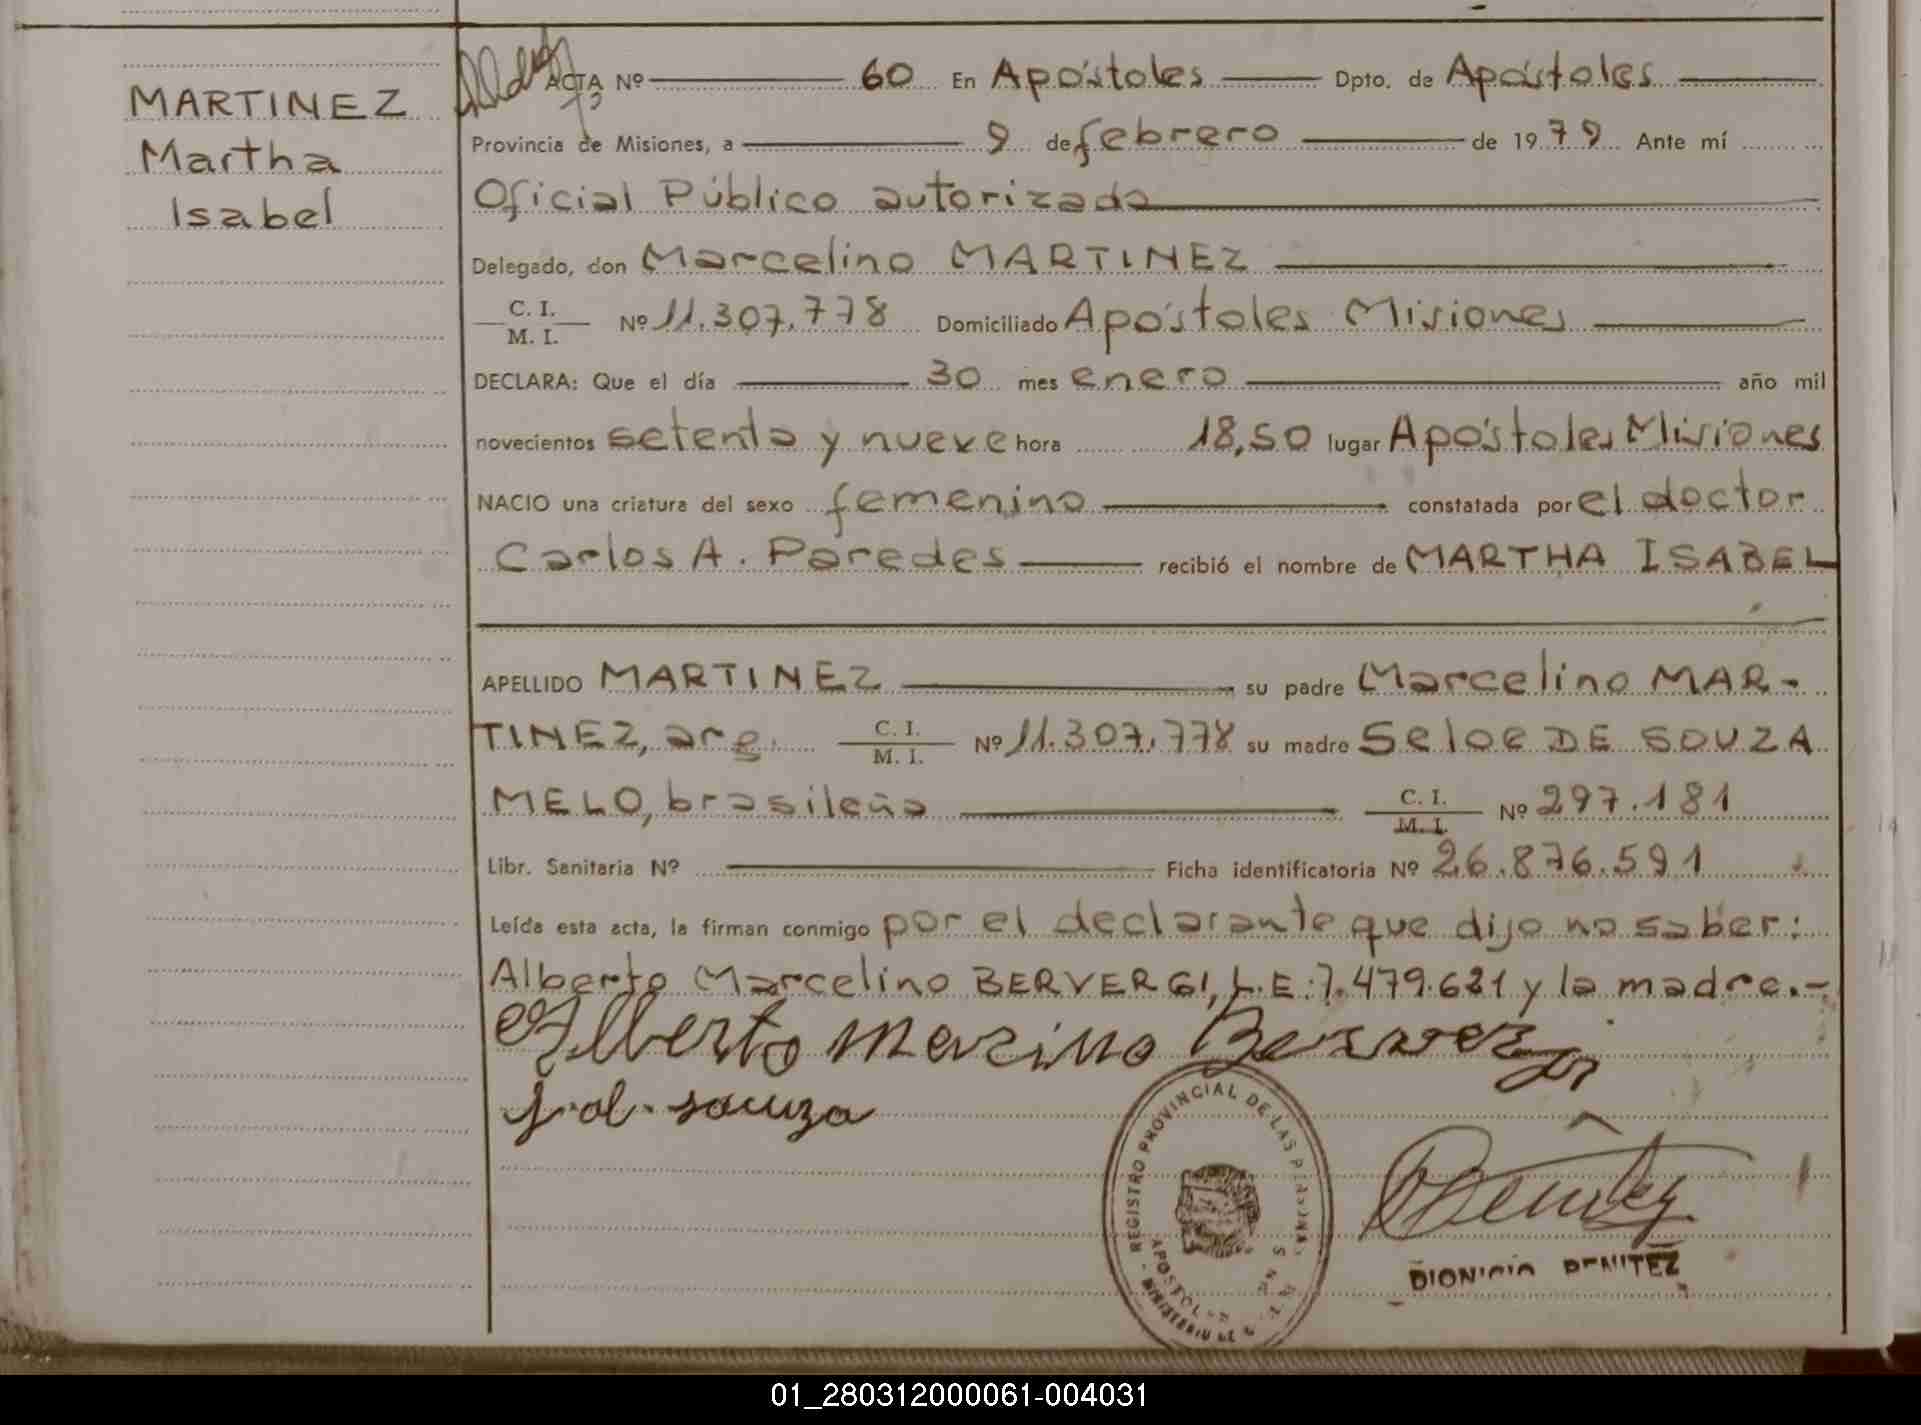 MARTINEZ
Martha
Isabel
ACTA Nº 60 En Apóstoles Dpto. de Apóstoles
Provincia de Misiones, a 9 de febrero de 1979 Ante mí
Oficial Público autorizado
Delegado, don Marcelino MARTINEZ
C. I.
M. I.
Nº 11.307.778 Domiciliado Apóstoles Misiones
DECLARA: Que el día 30 mes enero año mil
novecientos setenta y nueve hora 18,50 lugar Apóstoles Misiones
NACIO una criatura del sexo femenino constatada por el doctor
Carlos A. Paredes recibió el nombre de MARTHA ISABEL
APELLIDO MARTINEZ su padre Marcelino MAR-
TINEZ, arg. C. I. Nº 11.307.778 su madre Seloe DE SOUZA
M. I.
MELO, brasileña C. I. Nº 297.181
M. I.
Libr. Sanitaria Nº Ficha identificatoria Nº 26.876.591
Leída esta acta, la firman conmigo por el declarante que dijo no saber:
Alberto Marcelino BERVERGI, L.E: 7.479.621 y la madre.-
Alberto Marcino
souza
REGISTRO PROVINCIAL DE LAS PERSONAS
APOSTOLES
MINISTERIO DE
Benitez
DIONICIO BENITEZ
01_280312000061-004031